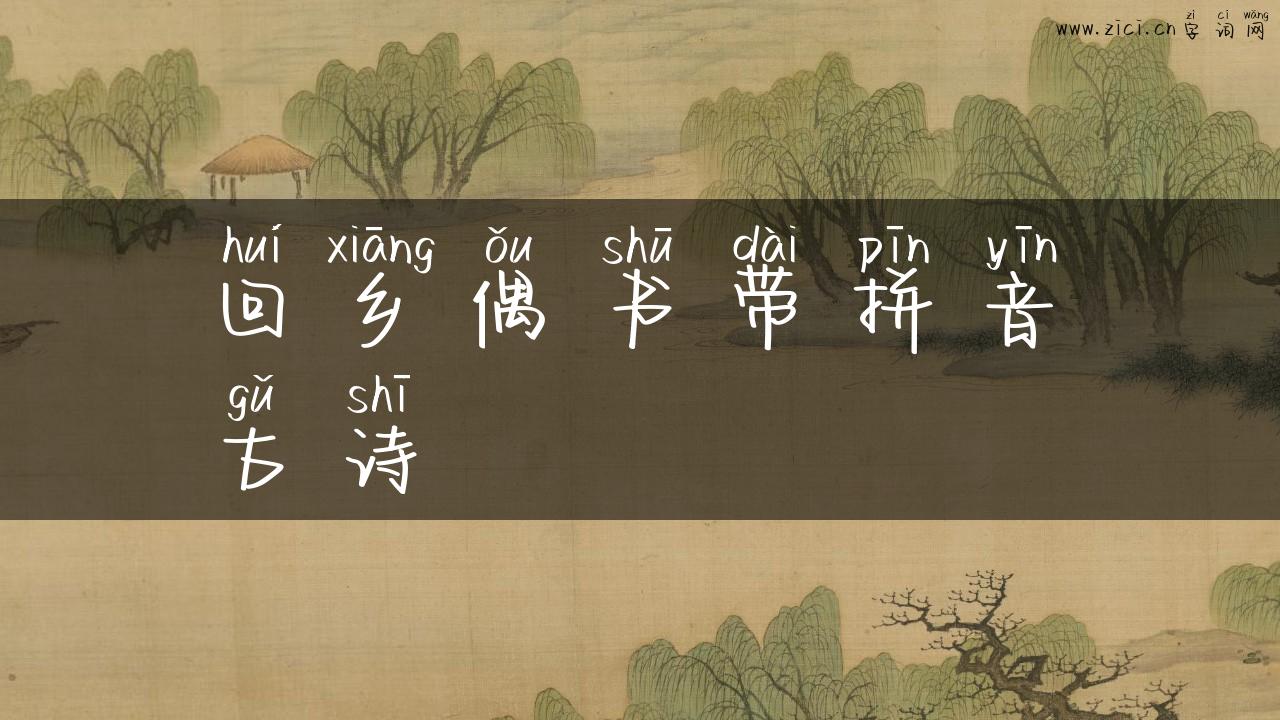 zì cí wǎng
www.zici.cn 字 词 网
huí xiāng ǒu shū dài pīn yīn
回 乡 偶 书 带 拼 音
gǔ shī
古 诗